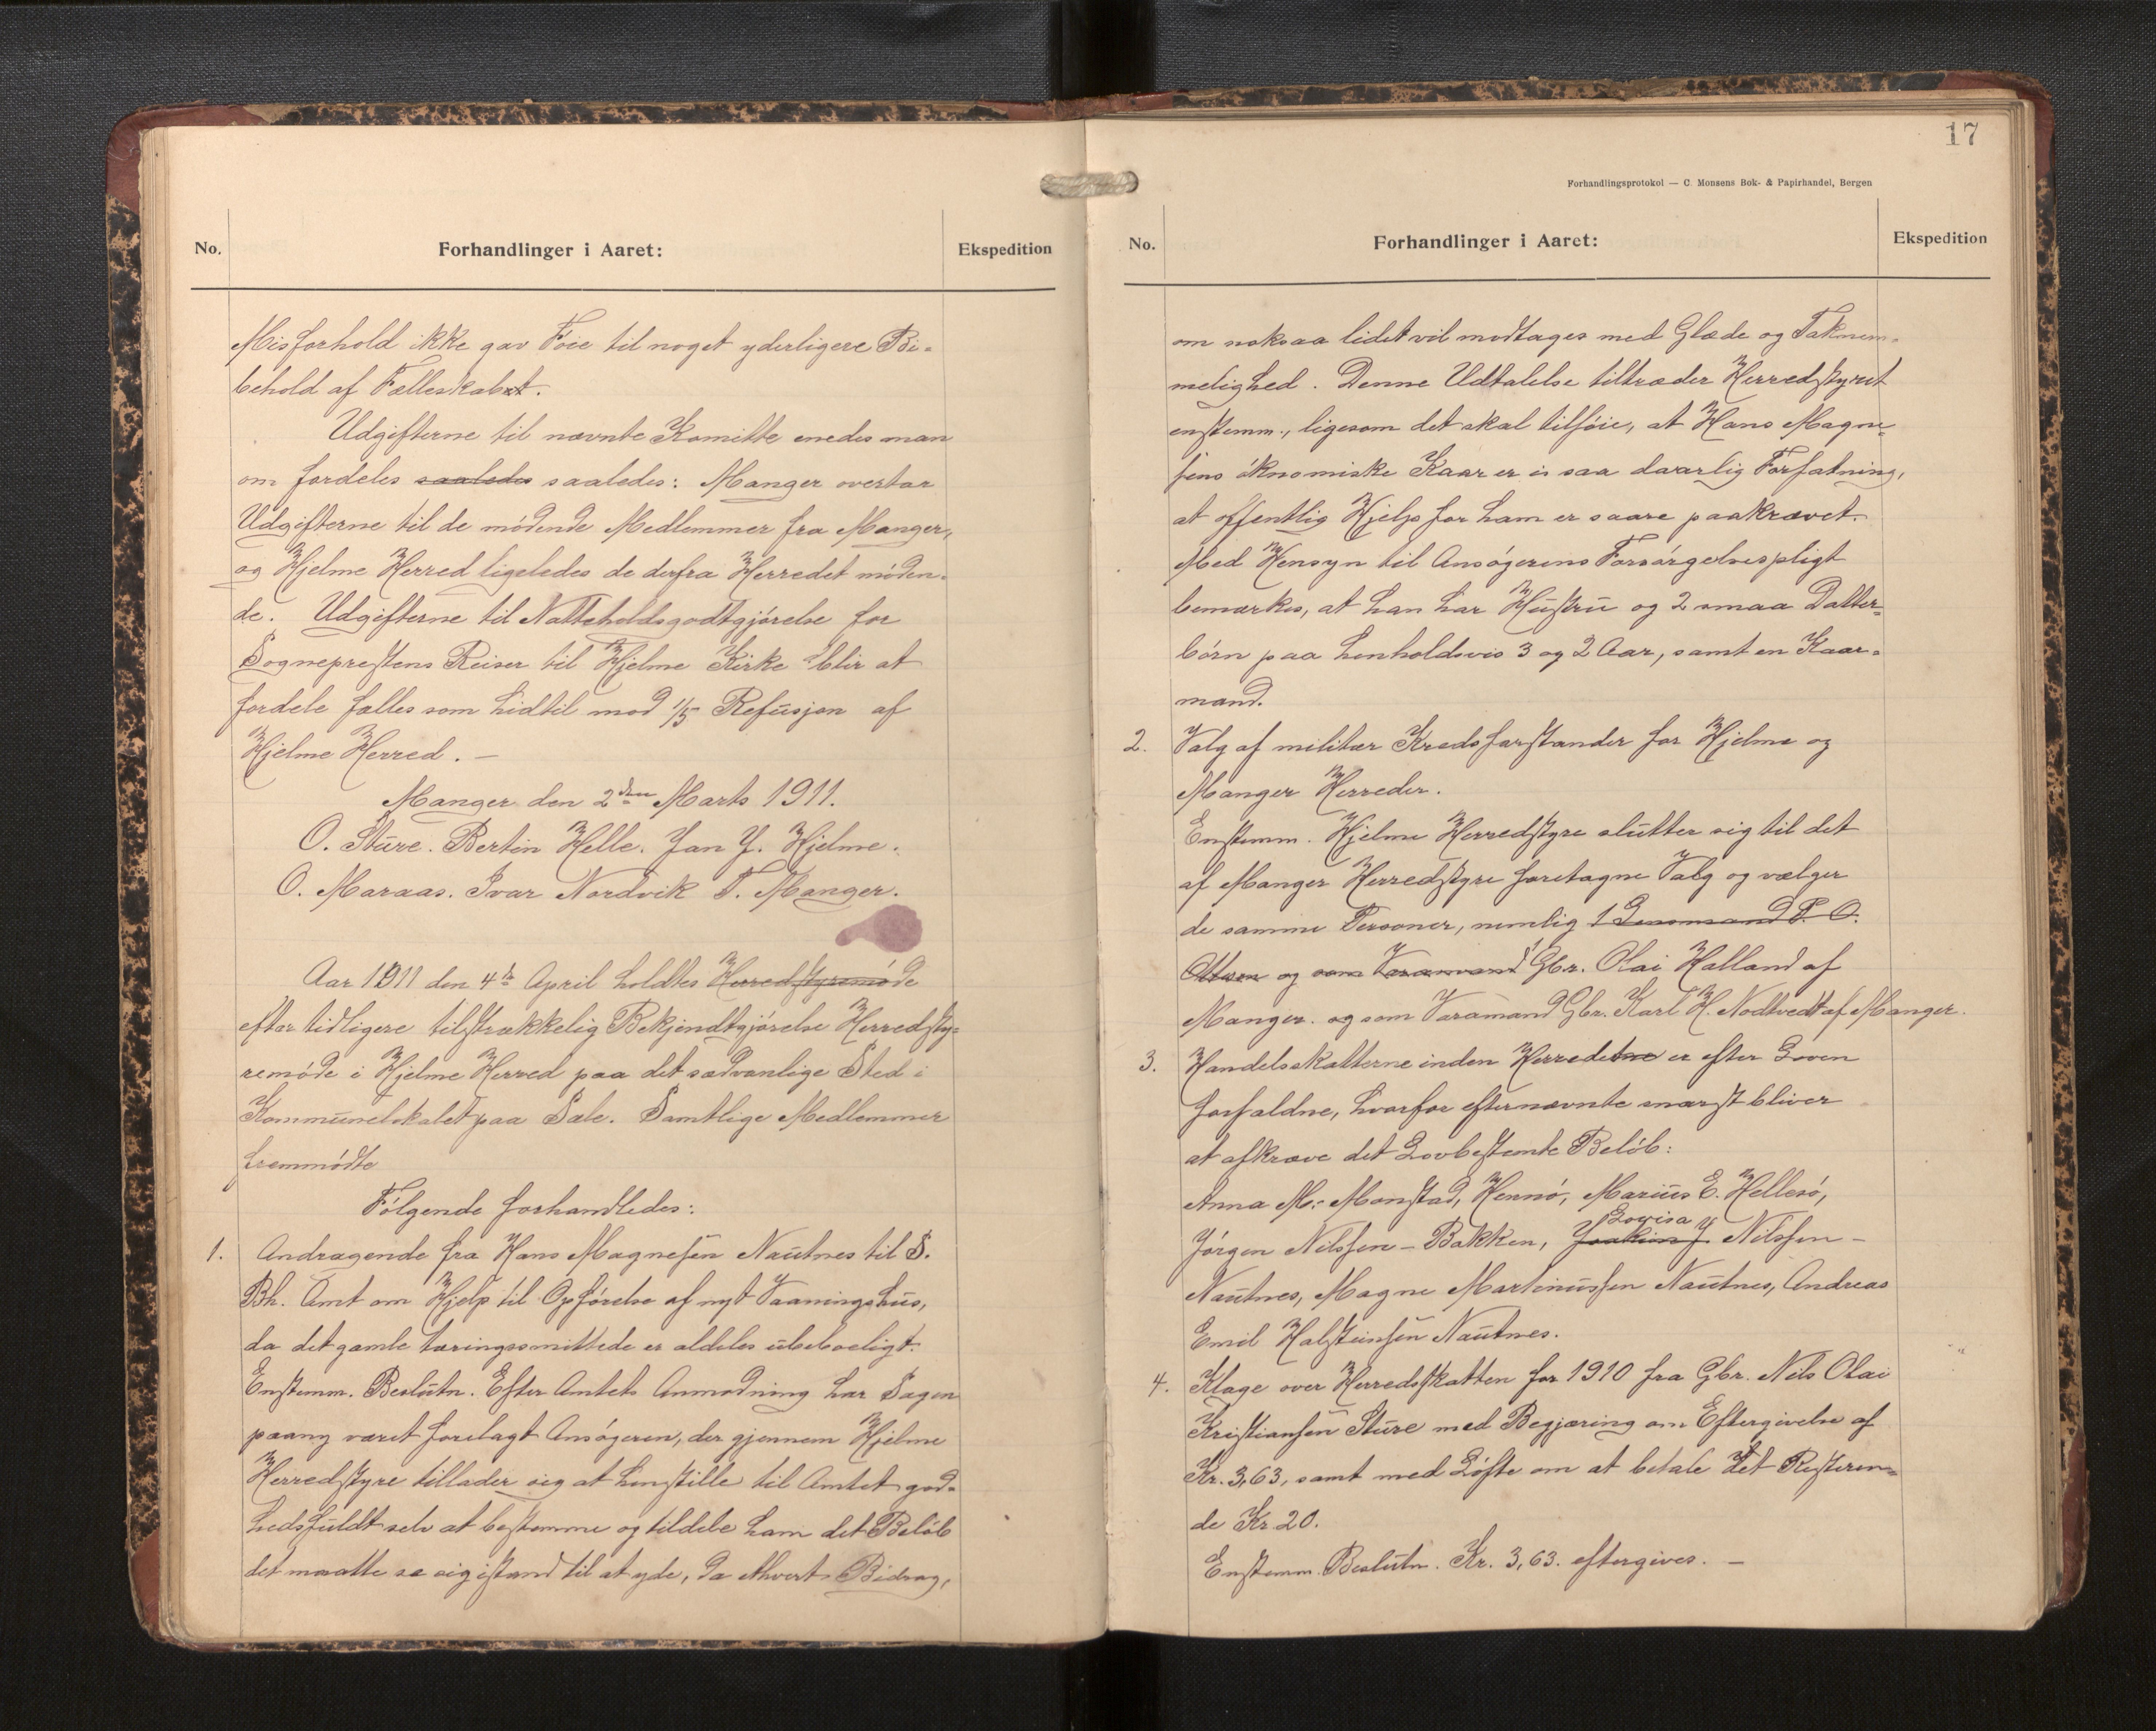 No.
Forhandlinger i Aaret:
Ekspedition
Misforhold ikke gav Föie til noget yderligere Bi-
behold af Fælleskabet.
Udgifterne til nævnte Komitte enedes man
om fordeles saaledes saaledes: Manger overtar
Udgifterne til de mödende Medlemmer fra Manger,
og Hjelme Herred ligeledes de derfra Herredet möden-
de. Udgifterne til Natteholdsgodtgjörelse for
Sogneprestens Reiser til Hjelme Kirke blir at
fordele fælles som hidtil mod 1/5 Refusjon af
Hjelme Herred. -
Manger den 2den Marts 1911.
O. Sture. Bertin Helle. Jan J. Hjelme.
O. Maraas. Ivar Nordvik T. Manger.
Aar 1911 den 4de April holdtes Herredstyremöde
efter tidligere tilstrækkelig Bekjendtgjörelse Herredsty-
remöde i Hjelme Herred paa det sædvanlige Sted i
Kommunelokalet paa Sæle. Samtlige Medlemmer
fremmödte
Fölgende forhandledes:
1. Andragende fra Hans Magnesen Nautnes til S.
Bh. Amt om Hjelp til Opförelse af nyt Vaaningshus,
da det gamle tæringssmittede er aldeles ubeboeligt.
Enstemm. Beslutn. Efter Amtets Anmodning har Sagen
paany været forelagt Ansögeren, der gjennem Hjelme
Herredstyre tillader sig at henstille til Amtet god-
hedsfuldt selv at bestemme og tildele ham det Belöb
det maatte se sig istand til at yde, da ethvert Bidrag,
17
Forhandlingsprotokol — C. Monsens Bok- & Papirhandel, Bergen
No.
Forhandlinger i Aaret:
Ekspedition
om noksaa lidet vil modtages med Glæde og Taknem-
melighed. Denne Udtalelse tiltræder Herredstyret
enstemm., ligesom det skal tilföie, at Hans Magne-
sens öknomiske Kaar er i saa daarlig Forfatning,
at offentlig Hjelp for ham er saare paakrævet.
Med Hensyn til Ansögerens Forsörgelsespligt
bemærkes, at han har Hustru og 2 smaa Datter-
börn paa henholdsvis 3 og 2 Aar, samt en Kaar-
mand.
2. Valg af militær Kredsforstander for Hjelme og
Manger Herreder.
Enstemm. Hjelme Herredstyre slutter sig til det
af Manger Herredstyre foretagne Valg og vælger
de samme Personer, nemlig 1 Lensmand P. O.
Ottsen og som Varamand Gbr. Olai Halland af
Manger. og som Varamand Gbr. Karl H. Nodtvedt af Manger.
3. Handelsskatterne inden Herredetne er efter Loven
forfaldne, hvorfor efternævnte snarst bliver
at afkræve det Lovbestemte Belöb:
Anna M. Monstad, Hernö, Marius E. Hellesö,
Lovisa
Jörgen Nilssen - Bakken, Joakim J. Nilssen -
Nautnes, Magne Martinussen Nautnes, Andreas
Emil Halsteinsen Nautnes.
4. Klage over Herredsskatten for 1910 fra Gbr. Nils Olai
Kristiansen Sture med Begjæring om Eftergivelse af
Kr. 3,63, samt med Löfte om at betale det Resteren-
de Kr. 20.
Enstemm. Beslutn. Kr. 3,63. eftergives. -